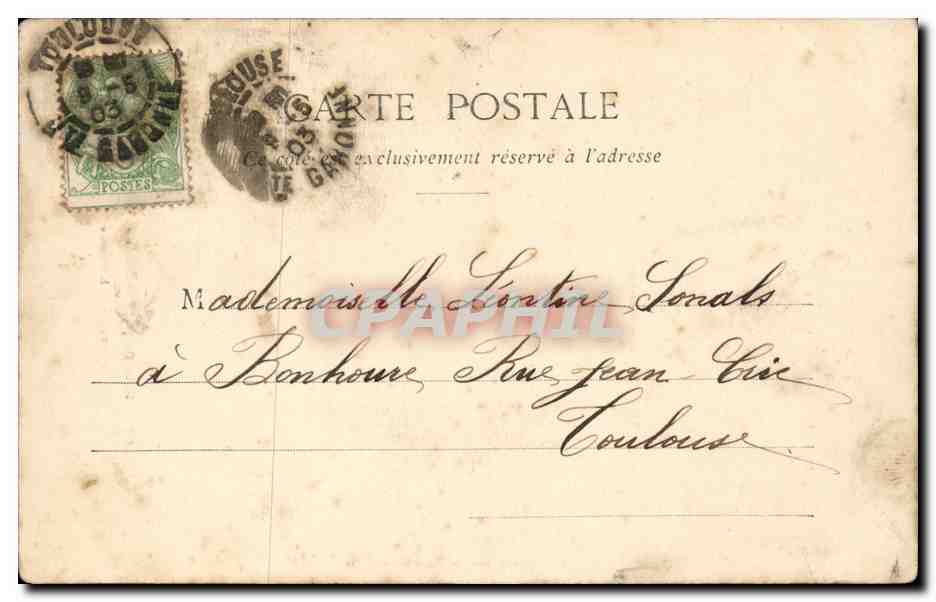 TOULOUSE
8 - 5
03
HTE GARONNE
POSTES
TOULOUSE
8 5
03
HTE GARONNE
CARTE POSTALE
Ce côté est exclusivement réservé à l'adresse
Mademoiselle Léontine Sonals
à Bonhoure Rue Jean
Toulouse
CPAPHIL